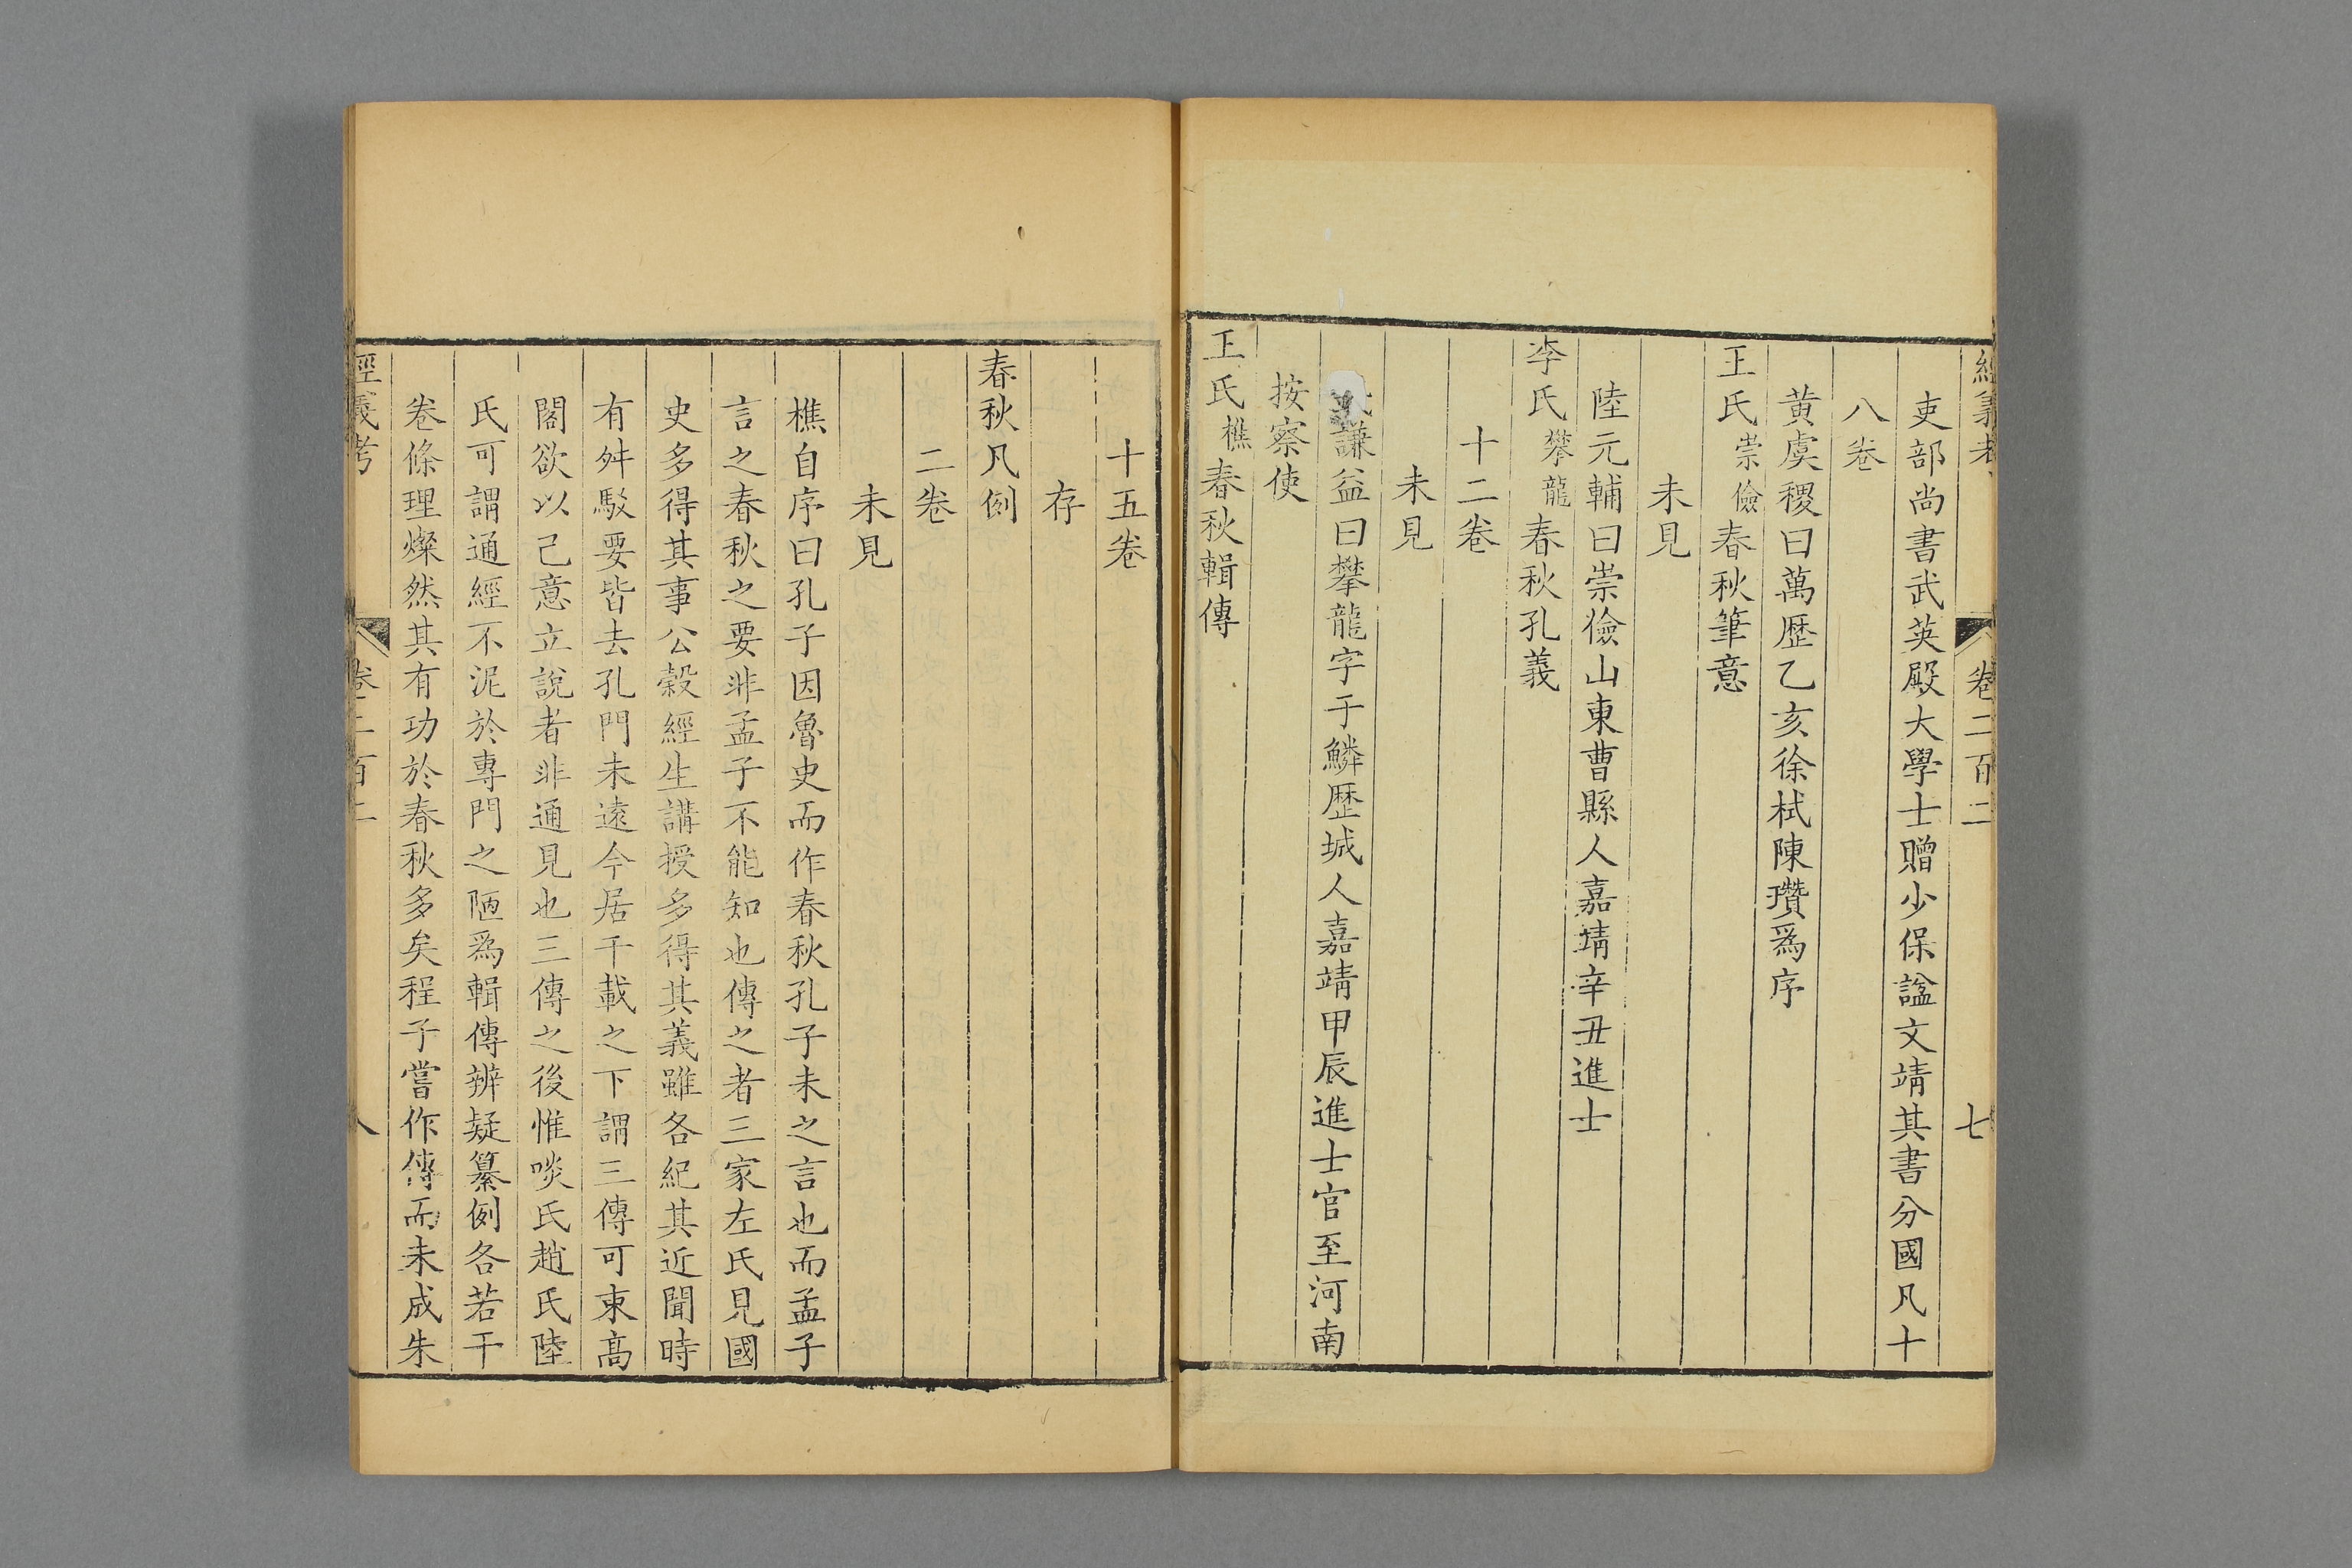 經義考 卷二百二 七
吏部尚書武英殿大學士贈少保諡文靖其書分國凡十
八卷
黄虞稷曰萬歷乙亥徐栻陳瓚爲序
王氏崇儉春秋筆意
未見
陸元輔曰崇儉山東曹縣人嘉靖辛丑進士
李氏攀龍春秋孔義
十二卷
未見
謙益曰攀龍字于鱗歷城人嘉靖甲辰進士官至河南
按察使
王氏樵春秋輯傳
十五卷
存
春秋凡例
二卷
未見
樵自序曰孔子因魯史而作春秋孔子未之言也而孟子
言之春秋之要非孟子不能知也傳之者三家左氏見國
史多得其事公穀經生講授多得其義雖各紀其近聞時
有舛駮要皆去孔門未遠今居千載之下謂三傳可東高
閣欲以己意立說者非通見也三傳之後惟啖氏趙氏陸
氏可謂通經不泥於專門之陋爲輯傳辨疑纂例各若干
卷條理燦然其有功於春秋多矣程子嘗作傳而未成朱
經義考 卷二百二 八